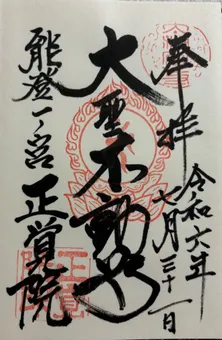 奉拝
令和六年七月三十一日
大聖不動
能登一ノ宮 正覚院